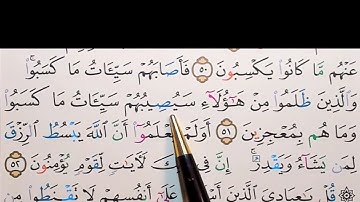 عَنْهُم مَّا كَانُوا۟ يَكْسِبُونَ ٥٠ فَأَصَابَهُمْ سَيِّـَٔاتُ مَا كَسَبُوا۟ ۚ
وَٱلَّذِينَ ظَلَمُوا۟ مِنْ هَـٰٓؤُلَآءِ سَيُصِيبُهُمْ سَيِّـَٔاتُ مَا كَسَبُوا۟
وَمَا هُم بِمُعْجِزِينَ ٥١ أَوَلَمْ يَعْلَمُوٓا۟ أَنَّ ٱللَّهَ يَبْسُطُ ٱلرِّزْقَ
لِمَن يَشَآءُ وَيَقْدِرُ ۚ إِنَّ فِى لَـَٔايَـٰتٍ لِّقَوْمٍ يُؤْمِنُونَ ٥٢
قُلْ يَـٰعِبَادِىَ ٱلَّذِينَ عَلَىٰٓ أَنفُسِهِمْ لَا تَقْنَطُوا۟ مِن